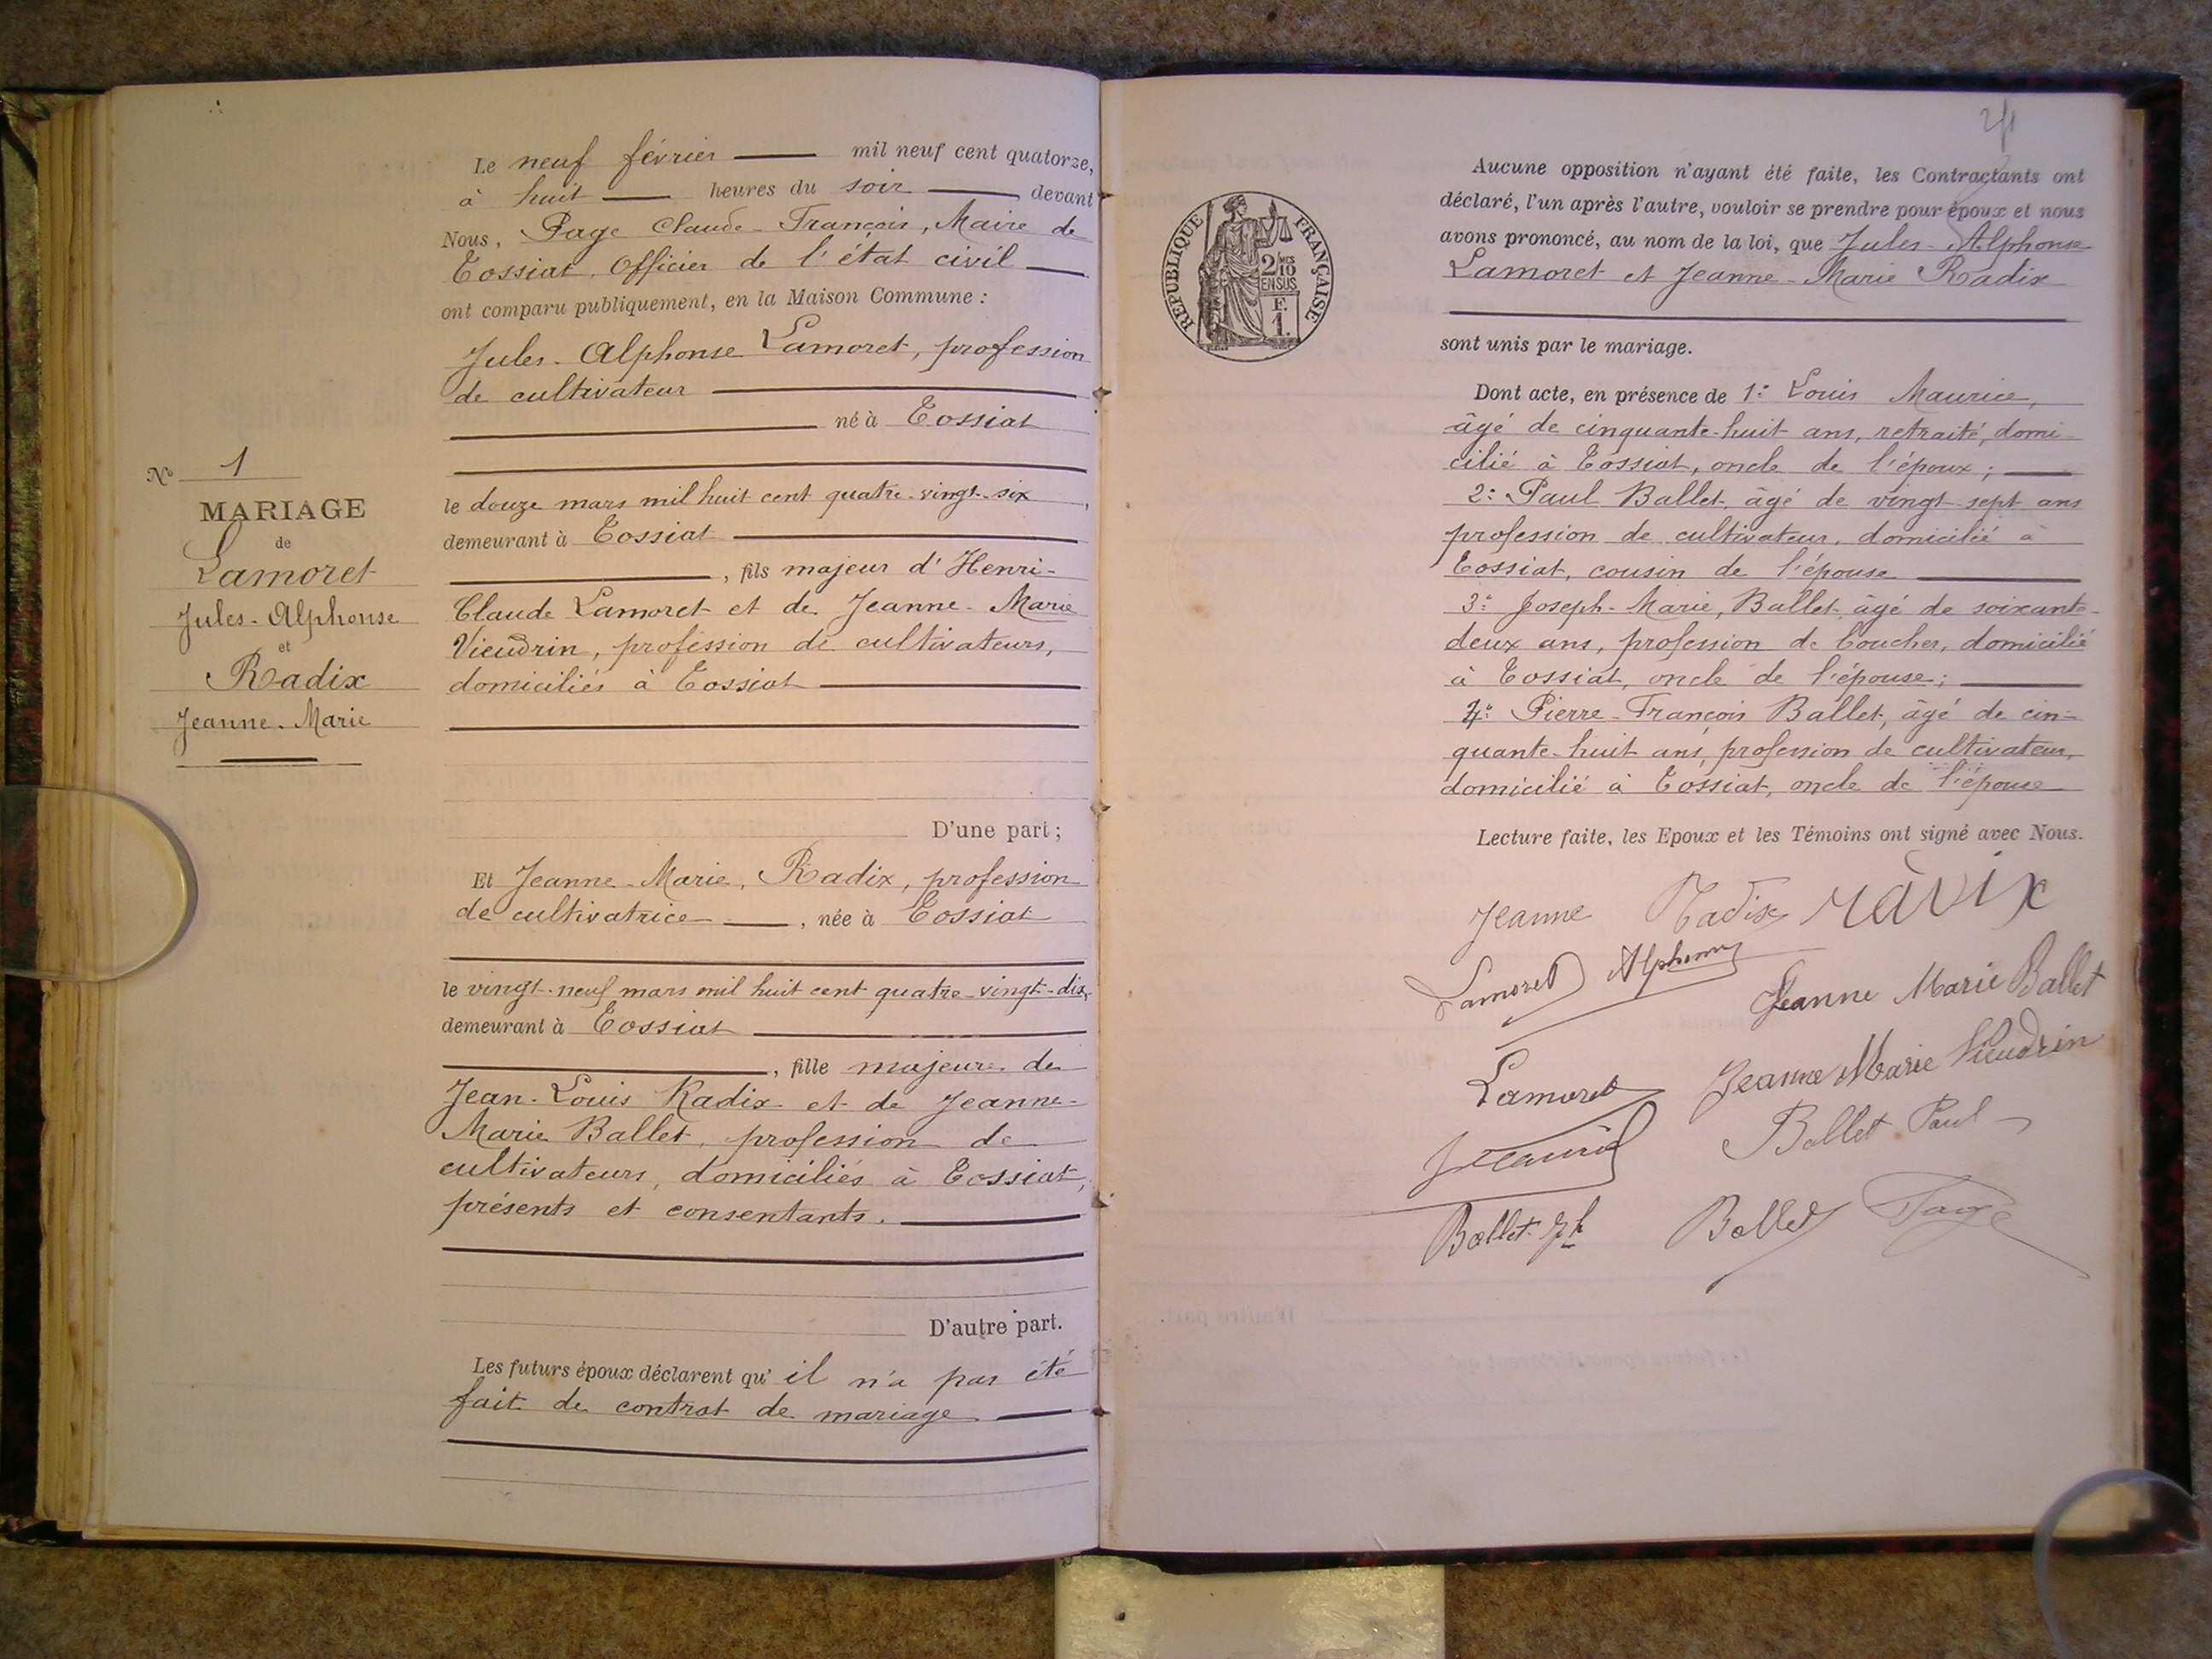 Le neuf février mil neuf cent quatorze,
à huit heures du soir devant
Nous, Page Claude-François, Maire de
Tossiat, Officier de l'état civil
ont comparu publiquement, en la Maison Commune :
Jules-Alphonse Lamoret, profession
de cultivateur
né à Tossiat
le douze mars mil huit cent quatre-vingt-six,
demeurant à Tossiat
, fils majeur d'Henri-
Claude Lamoret et de Jeanne-Marie
Vieudrin, profession de cultivateurs,
domiciliés à Tossiat
No 1
MARIAGE
de
Lamoret
Jules-Alphonse
et
Radix
Jeanne-Marie
D'une part ;
Et Jeanne-Marie, Radix, profession
de cultivatrice , née à Tossiat
le vingt-neuf mars mil huit cent quatre-vingt-dix,
demeurant à Tossiat
, fille majeure de
Jean-Louis Radix et de Jeanne-
Marie Ballet, profession de
cultivateurs, domiciliés à Tossiat,
présents et consentants.
D'autre part.
Les futurs époux déclarent qu'il n'a pas été
fait de contrat de mariage
REPUBLIQUE FRANÇAISE
2/10
EN SUS
F.
1.
Aucune opposition n'ayant été faite, les Contractants ont
déclaré, l'un après l'autre, vouloir se prendre pour époux et nous
avons prononcé, au nom de la loi, que Jules-Alphonse
Lamoret et Jeanne-Marie Radix
sont unis par le mariage.
Dont acte, en présence de 1° Louis Maurice,
âgé de cinquante-huit ans, retraité, domi-
cilié à Tossiat, oncle de l'époux ;
2° Paul Ballet, âgé de vingt-sept ans
profession de cultivateur, domicilié à
Tossiat, cousin de l'épouse
3° Joseph-Marie, Ballet, âgé de soixante-
deux ans, profession de boucher, domicilié
à Tossiat, oncle de l'épouse ;
4° Pierre-François Ballet, âgé de cin-
quante-huit ans, profession de cultivateur,
domicilié à Tossiat, oncle de l'épouse
Lecture faite, les Epoux et les Témoins ont signé avec Nous.
Jeanne Radix radix
Lamoret Alphonse
Jeanne Marie Ballet
Lamoret Jeanne Marie Vieudrin
Ballet Paul
Ballet Jh Ballet Page